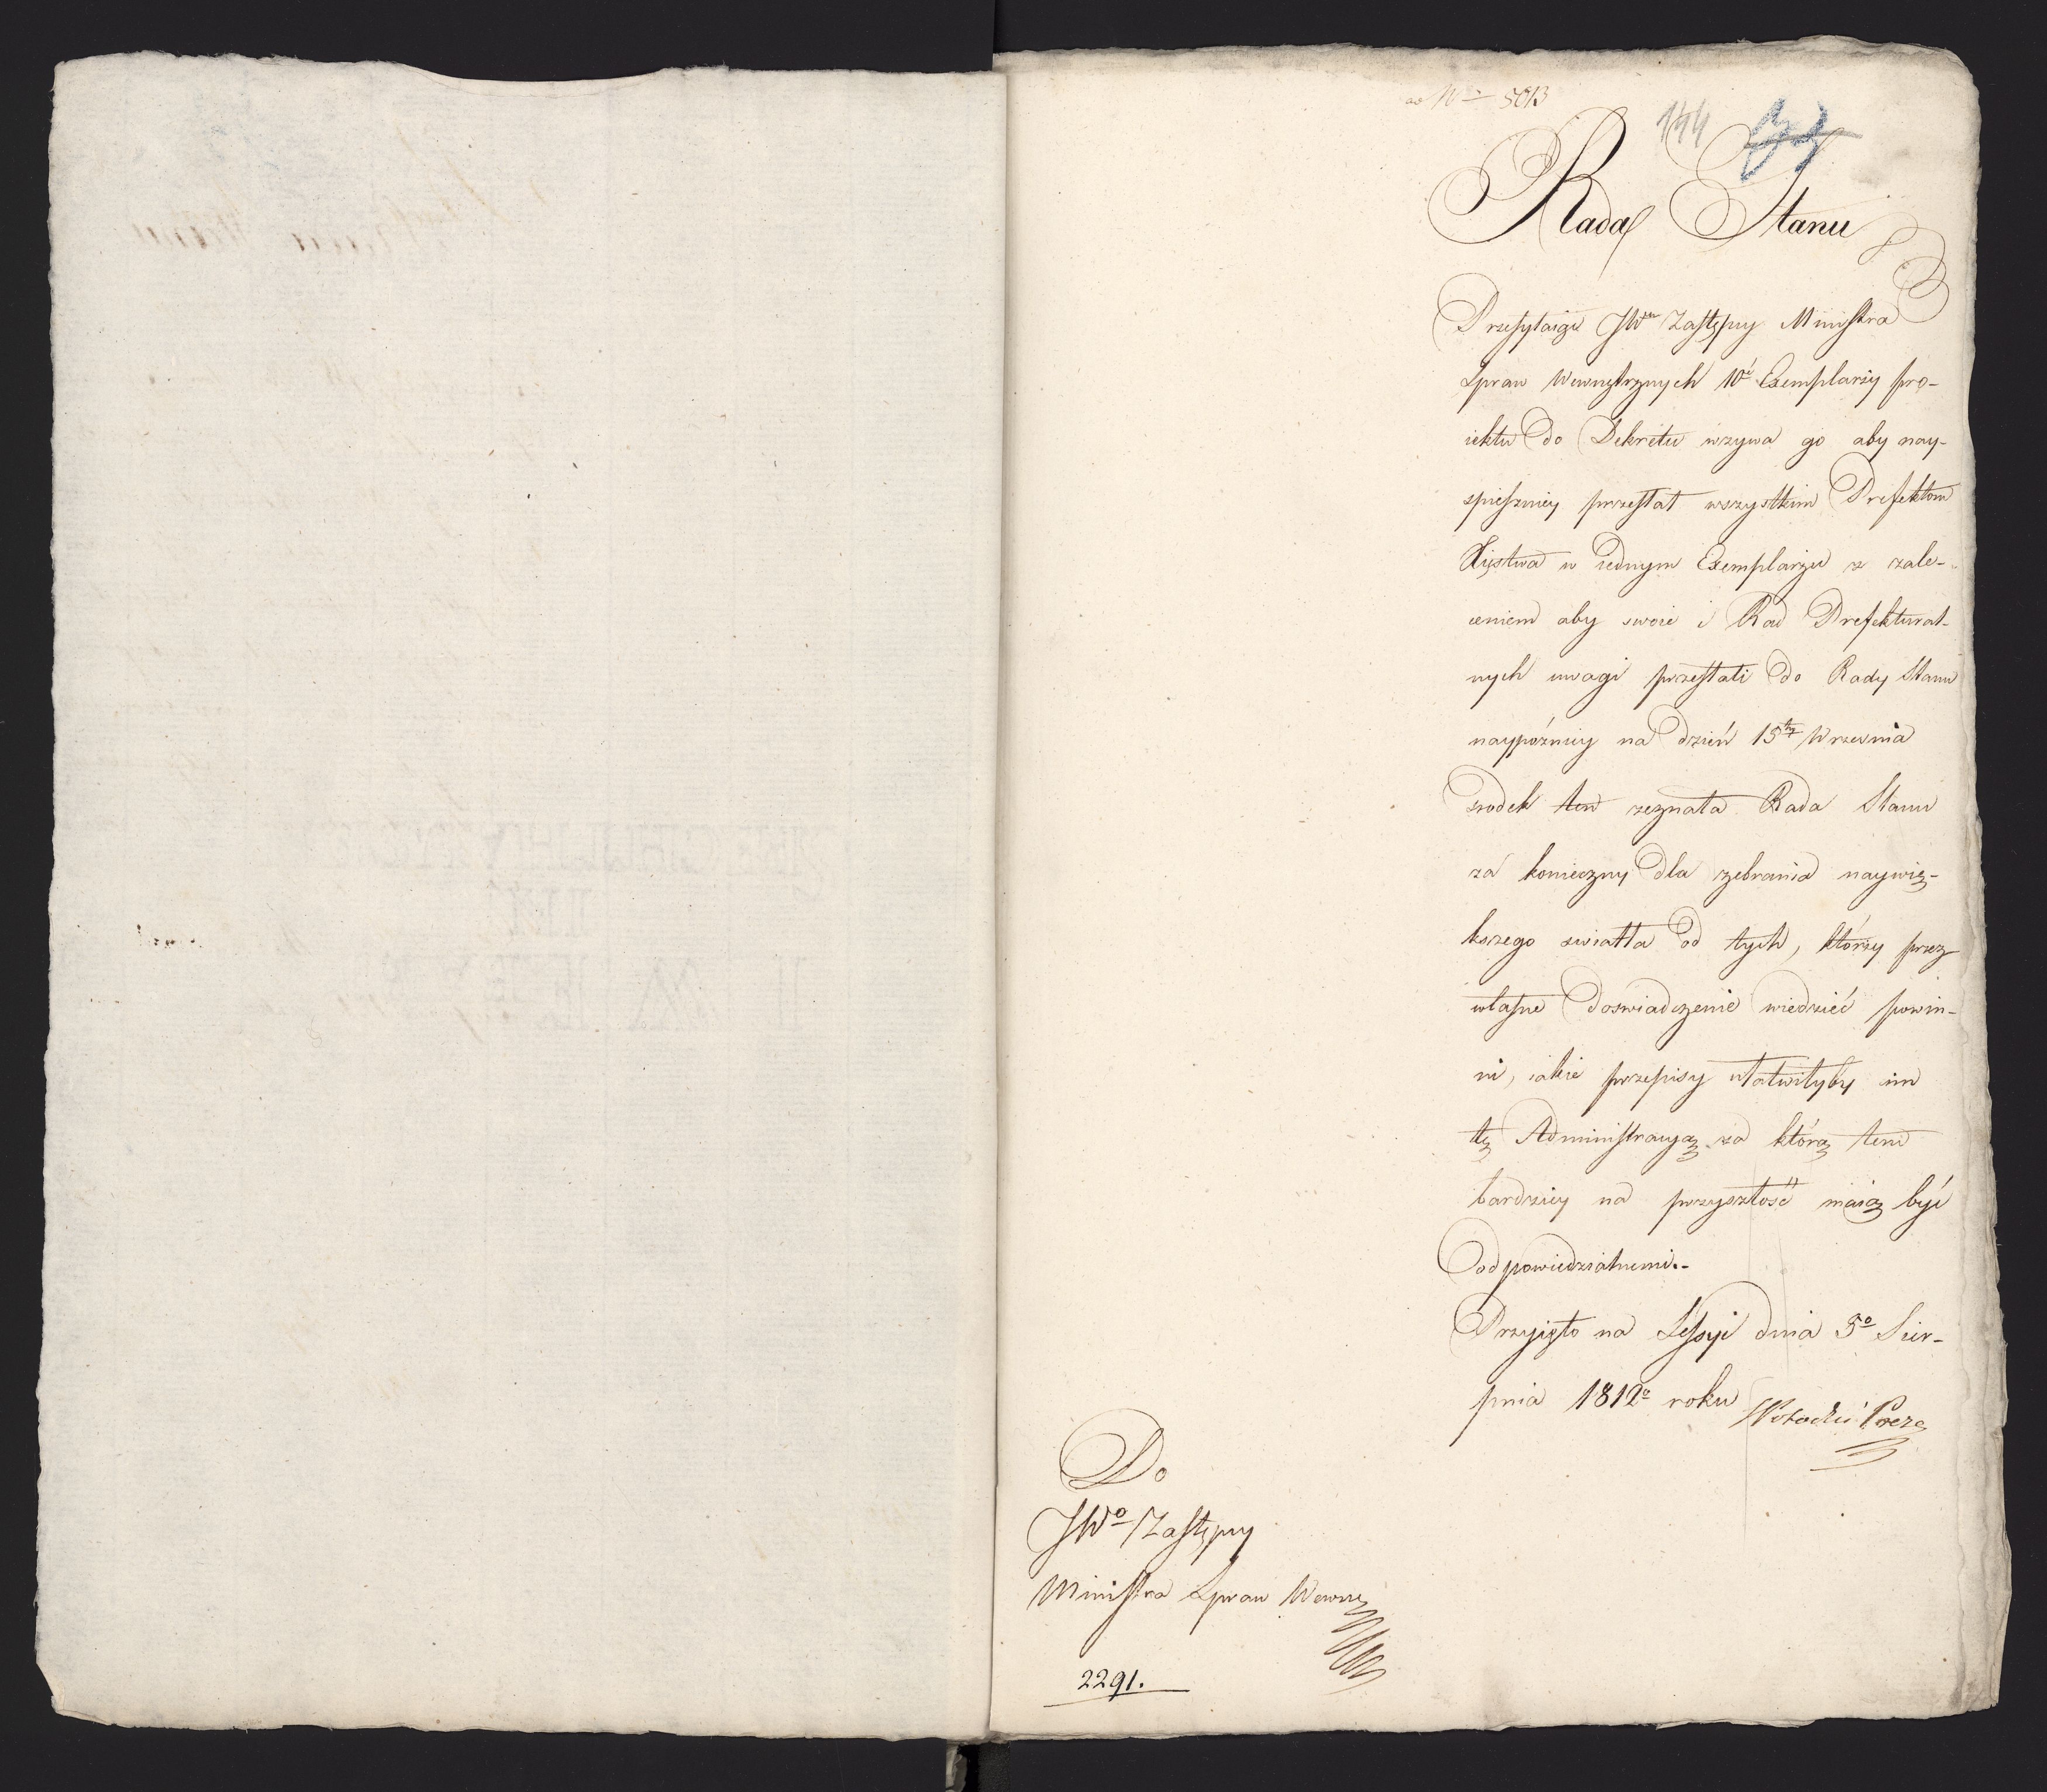 ad Nr 5013
144
Rada Stanu
Przesyłaiąc JWu Zastępcy Ministra
Spraw Wewnętrznych 10ć Exemplarzy pro-
iektu do Dekretu wzywa go aby nay-
spieszniey przesłał wszystkim Prefektom
Xięstwa w iednym Exemplarzu z zale-
ceniem aby swoie i Rad Prefektural-
nych uwagi przesłali do Rady Stanu
naypóźniey na dzień 15ty Wrzesnia
srodek ten zeznała Rada Stanu
za konieczny dla zebrania naywię-
kszego swiatła od tych, którzy przez
własne doswiadczenie wiedzieć powin-
ni, iakie przepisy ułatwiłyby im
tę Administracyą za którą tem
bardziey na przyszłość maią być
odpowiedzialnemi.-
Przyięto na Sessyi dnia 5o Sier-
pnia 1812o roku
Do
JWo Zastępcy
Ministra Spraw Wewnę
2291.